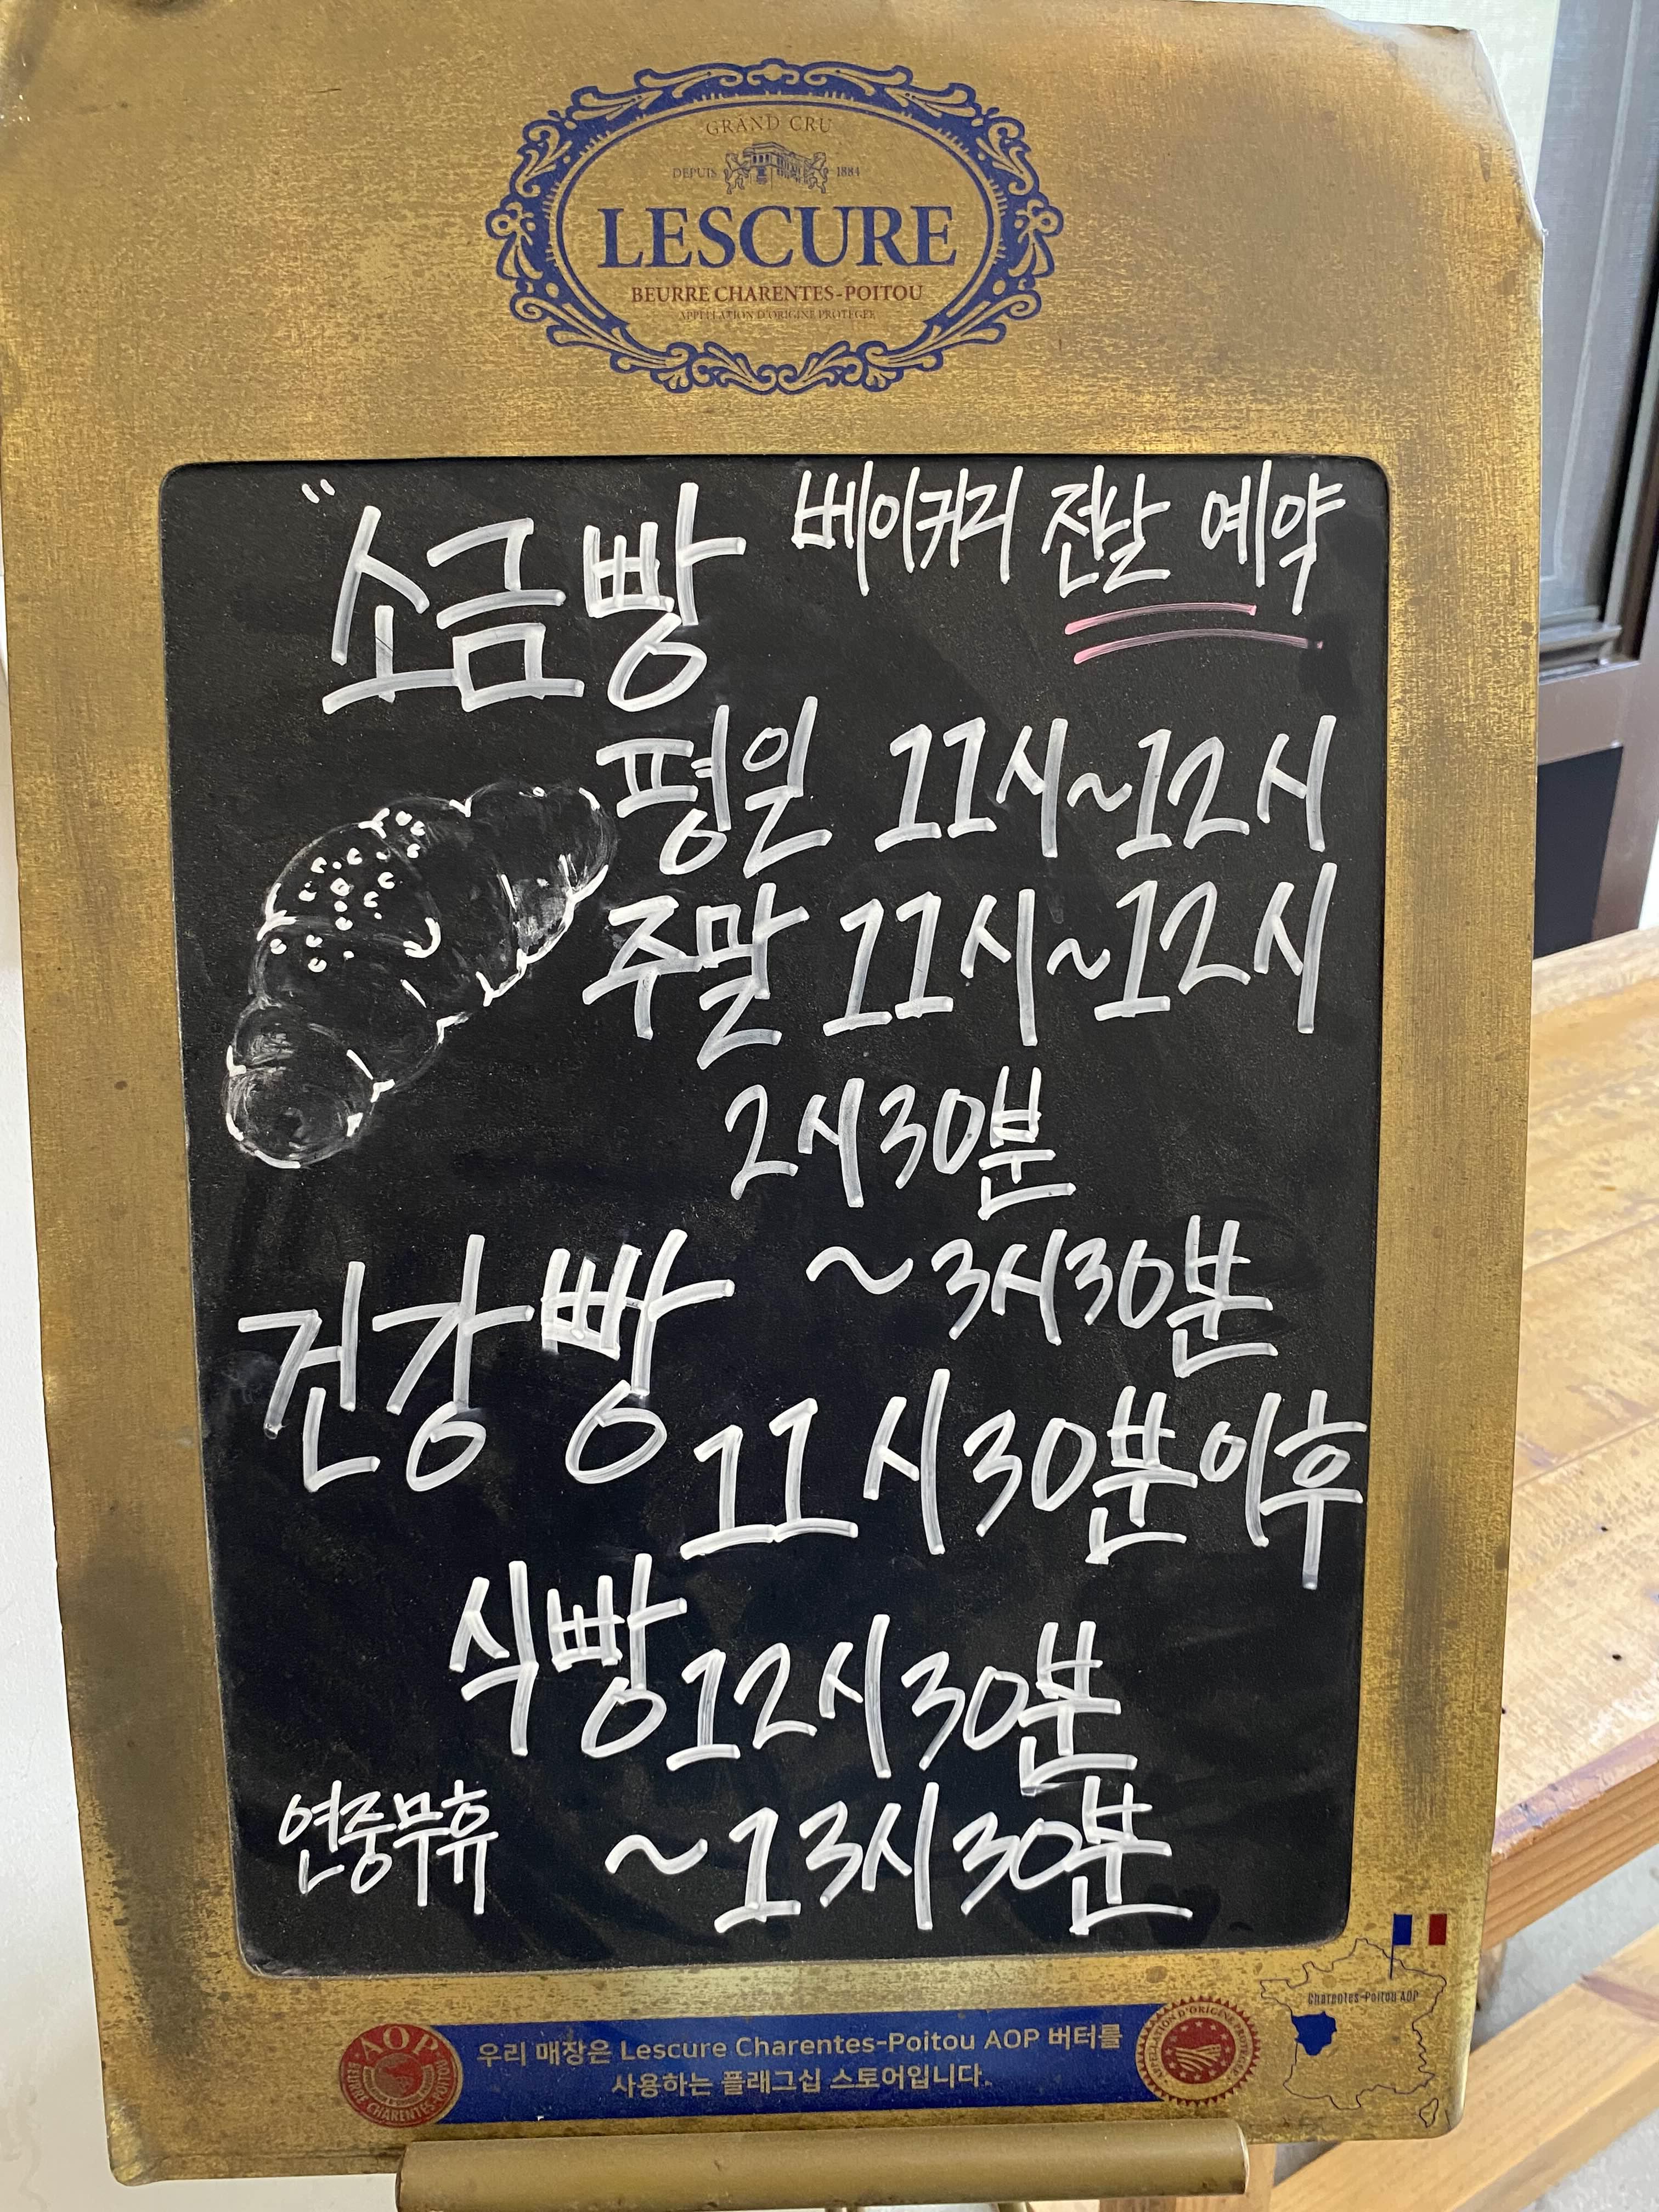 GRAND CRU
DEPUIS 1884
LESCURE
BEURRE CHARENTES-POITOU
APPELLATION D'ORIGINE PROTÉGÉE
베이커리 전날 예약
"소금빵
평일 11시~12시
주말 11시~12시
2시30분
~3시30분
건강빵
11시30분이후
식빵 12시30분
~13시30분
연중무휴
Charentes-Poitou AOP
AOP
BEURRE CHARENTES-POITOU
우리 매장은 Lescure Charentes-Poitou AOP 버터를
사용하는 플래그십 스토어입니다.
APPELLATION D'ORIGINE PROTÉGÉE